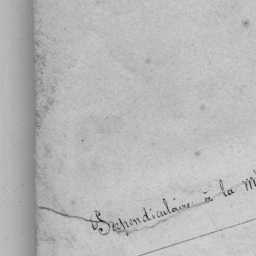 Perpendiculaire à la M